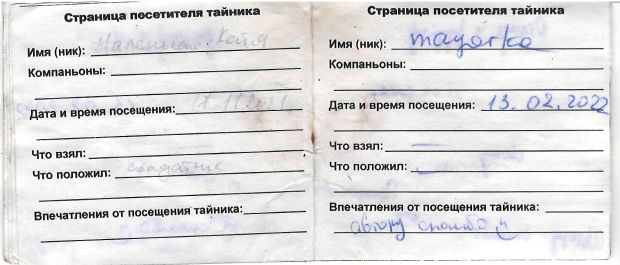 Страница посетителя тайника
Имя (ник): Маленькая Катя
Компаньоны:
Дата и время посещения: 17.11.2021
Что взял:
Что положил: солдатик
Впечатления от посещения тайника:
Страница посетителя тайника
Имя (ник): mayorka
Компаньоны:
Дата и время посещения: 13.02.2022
Что взял:
Что положил:
Впечатления от посещения тайника:
автору спасибо